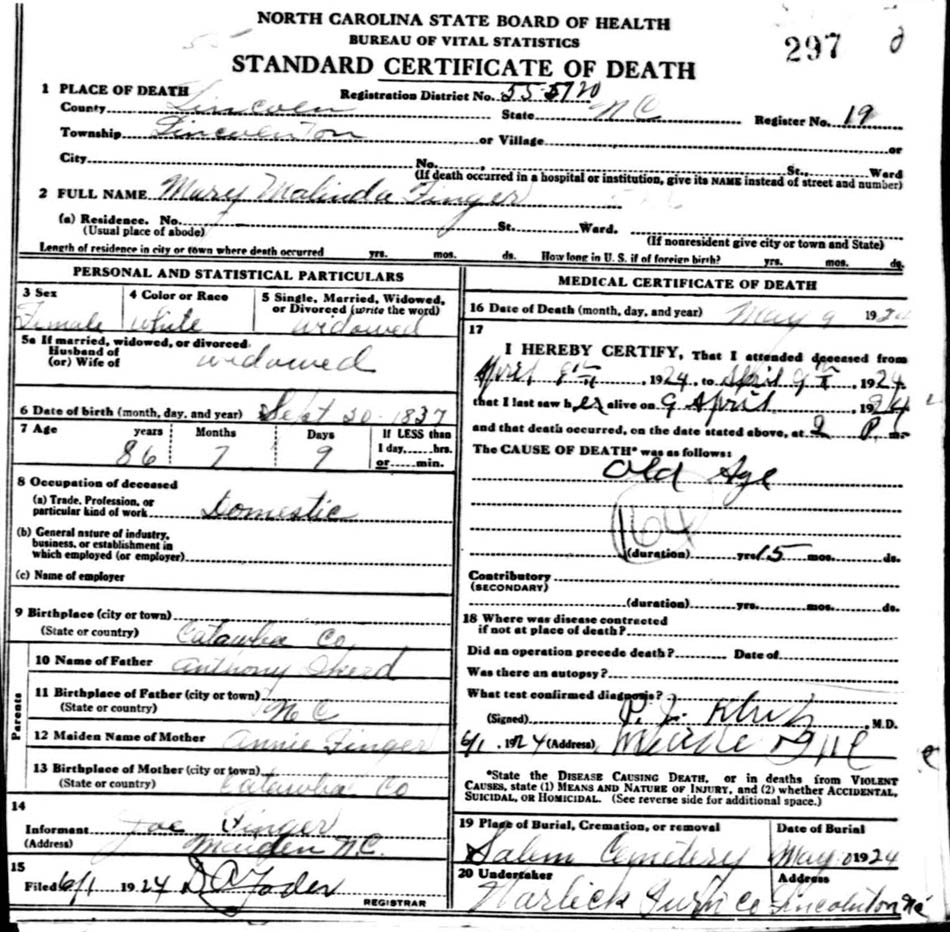 NORTH CAROLINA STATE BOARD OF HEALTH
BUREAU OF VITAL STATISTICS
297
STANDARD CERTIFICATE OF DEATH
1 PLACE OF DEATH Registration District No. 55-5720
County Lincoln State NC Register No. 19
Township Lincolnton or Village or
City No. St., Ward
(If death occurred in a hospital or institution, give its NAME instead of street and number)
2 FULL NAME Mary Malinda Finger
(a) Residence. No. St. Ward.
(Usual place of abode) (If nonresident give city or town and State)
Length of residence in city or town where death occurred yrs. mos. ds. How long in U. S. if of foreign birth? yrs. mos. ds.
PERSONAL AND STATISTICAL PARTICULARS
3 Sex 4 Color or Race 5 Single, Married, Widowed, or Divorced (write the word)
Female White Widowed
5a If married, widowed, or divorced
Husband of
(or) Wife of widowed
6 Date of birth (month, day, and year) Sept 20-1837
7 Age years Months Days If LESS than
1 day hrs.
86 7 9 or min.
8 Occupation of deceased
(a) Trade, Profession, or
particular kind of work Domestic
(b) General nature of industry,
business, or establishment in
which employed (or employer)
(c) Name of employer
9 Birthplace (city or town)
(State or country) Catawba Co,
Parents
10 Name of Father Anthony
11 Birthplace of Father (city or town)
(State or country) N C
12 Maiden Name of Mother Annie Finger
13 Birthplace of Mother (city or town)
(State or country) Catawba Co
14
Informant Joe Finger
(Address) Maiden N.C.
15
Filed 6/1 1924 Yoder
REGISTRAR
MEDICAL CERTIFICATE OF DEATH
16 Date of Death (month, day, and year) May 9 1924
17
I HEREBY CERTIFY, That I attended deceased from
April 9th, 1924, to April 9th, 1924.
that I last saw her alive on 9 April, 1924
and that death occurred, on the date stated above, at 2 P. m.
The CAUSE OF DEATH* was as follows:
Old Age
164
(duration) yrs. 15 mos. ds.
Contributory
(SECONDARY)
(duration) yrs. mos. ds.
18 Where was disease contracted
if not at place of death?
Did an operation precede death? Date of
Was there an autopsy?
What test confirmed diagnosis?
(Signed) P. J. , M.D.
6/1, 1924 (Address)
*State the DISEASE CAUSING DEATH, or in deaths from VIOLENT
CAUSES, state (1) MEANS AND NATURE OF INJURY, and (2) whether ACCIDENTAL,
SUICIDAL, OR HOMICIDAL. (See reverse side for additional space.)
19 Place of Burial, Cremation, or removal Date of Burial
Salem Cemetery May 1924
20 Undertaker Address
Warlick Furn Co Lincolnton NC